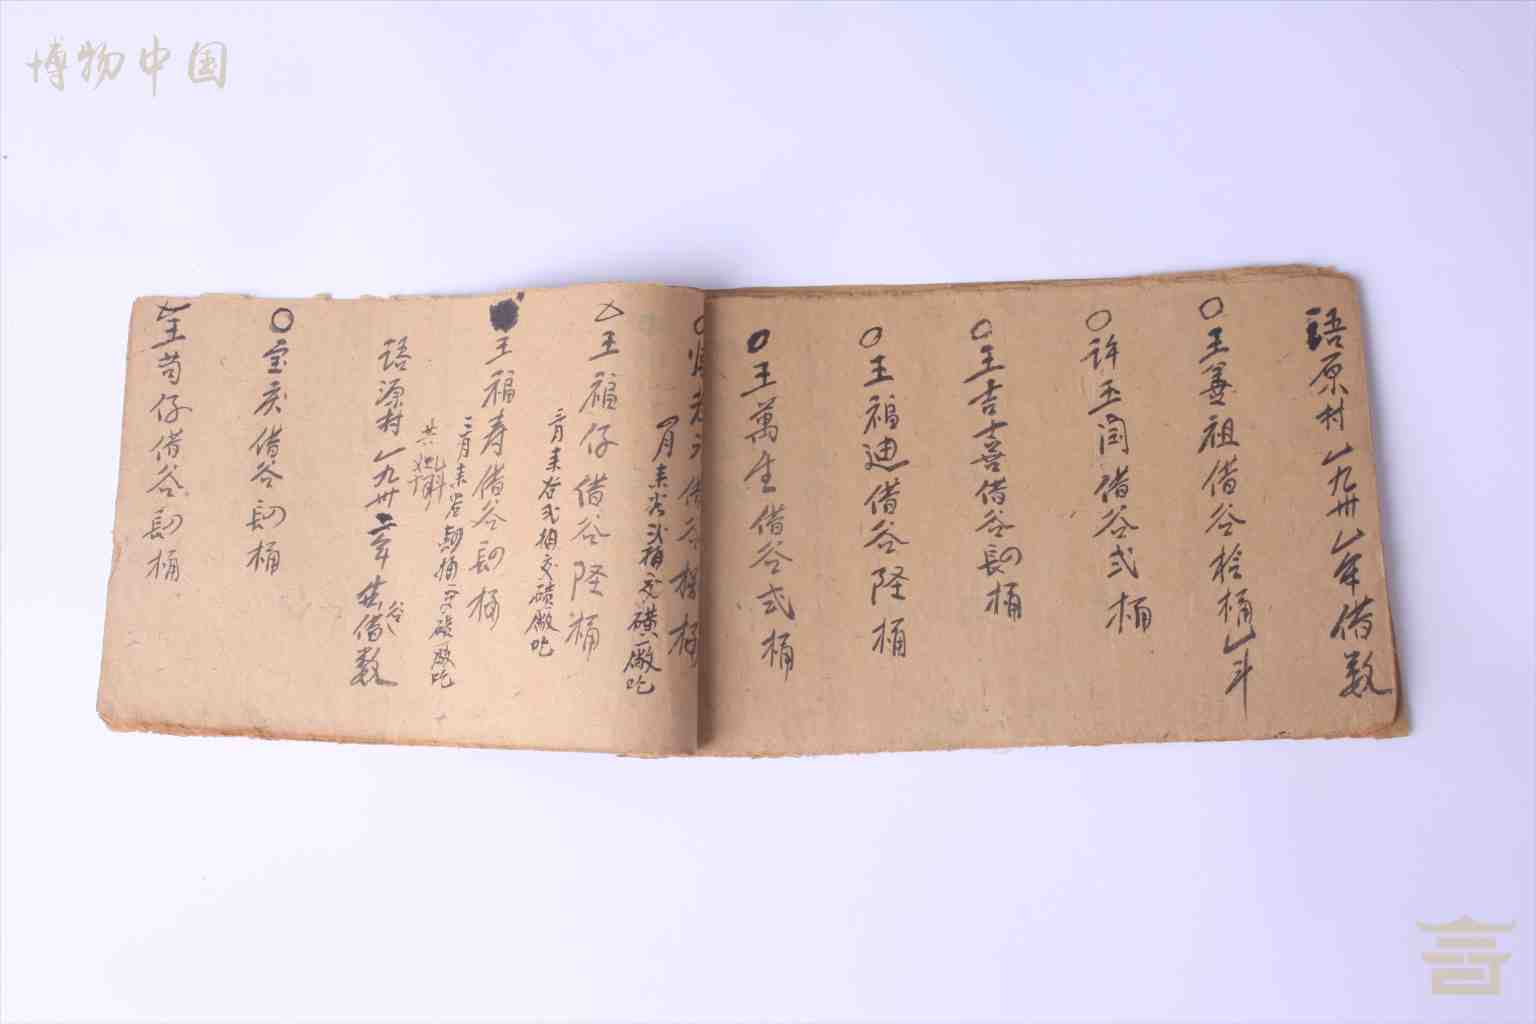 博物中国
語原村一九卅一年借数
王善祖借谷拾桶一斗
許玉闰借谷弍桶
王吉喜借谷肆桶
王福迪借谷陸桶
王萬生借谷弍桶
借谷桶
月来谷弍桶交礦廠吃
王福仔借谷陸桶
二月来谷弍桶交礦廠吃
王福寿借谷肆桶
二月来谷桶交廠吃
語源村一九卅二年共借谷数
宝庆借谷肆桶
王苟仔借谷肆桶